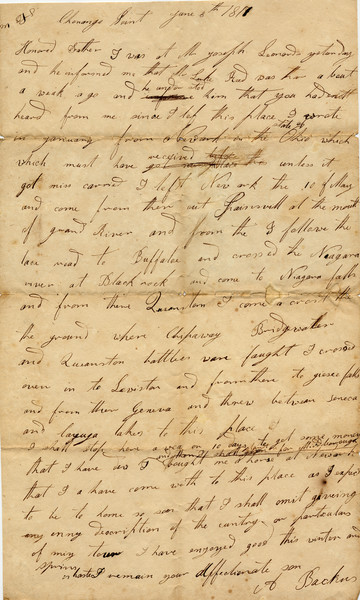 Chenango Point June 5th 18
Honored Father I was at Mr Joseph Leonards yesterday
and he informed me that Mr Luke Reed was hear a bout
a week ago and he informed him that you had not
heard from me since I left this place I wrote
in january from Newark in the State of Ohio which
which must have received unless it
got miss carried I left Newark the 10 of May
and come from there out Fairservell at the mouth
of grand River and from the I follow the
lace road to Buffaloe and crossed the Niagara
river at Black rock and come to Niagara falls
and from there Queanston I come a crost the
the ground where Chipaway Bridgwater
and Queanston battles ware faught I crossed
over on to Leviston and from there to genese falls
and from their Geneva and threw between seneca
and cayuga lakes to this place
I shall stop here a weak or 10 days to get some money
that I have as I bought me a horse at Newark
that I a have come with to this place as I expect
to be to home so soon that I shall omit giveing
any deccription of the cuntry or particulars
of my tour I have enjoyed good this winter and
spring in haste I remain your affectionate son
A Backus